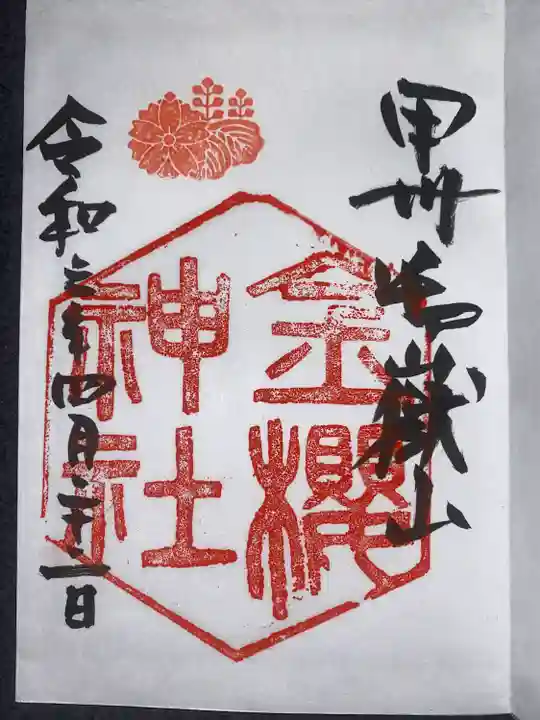 甲州御嶽山
金櫻
神社
令和六年四月二十二日